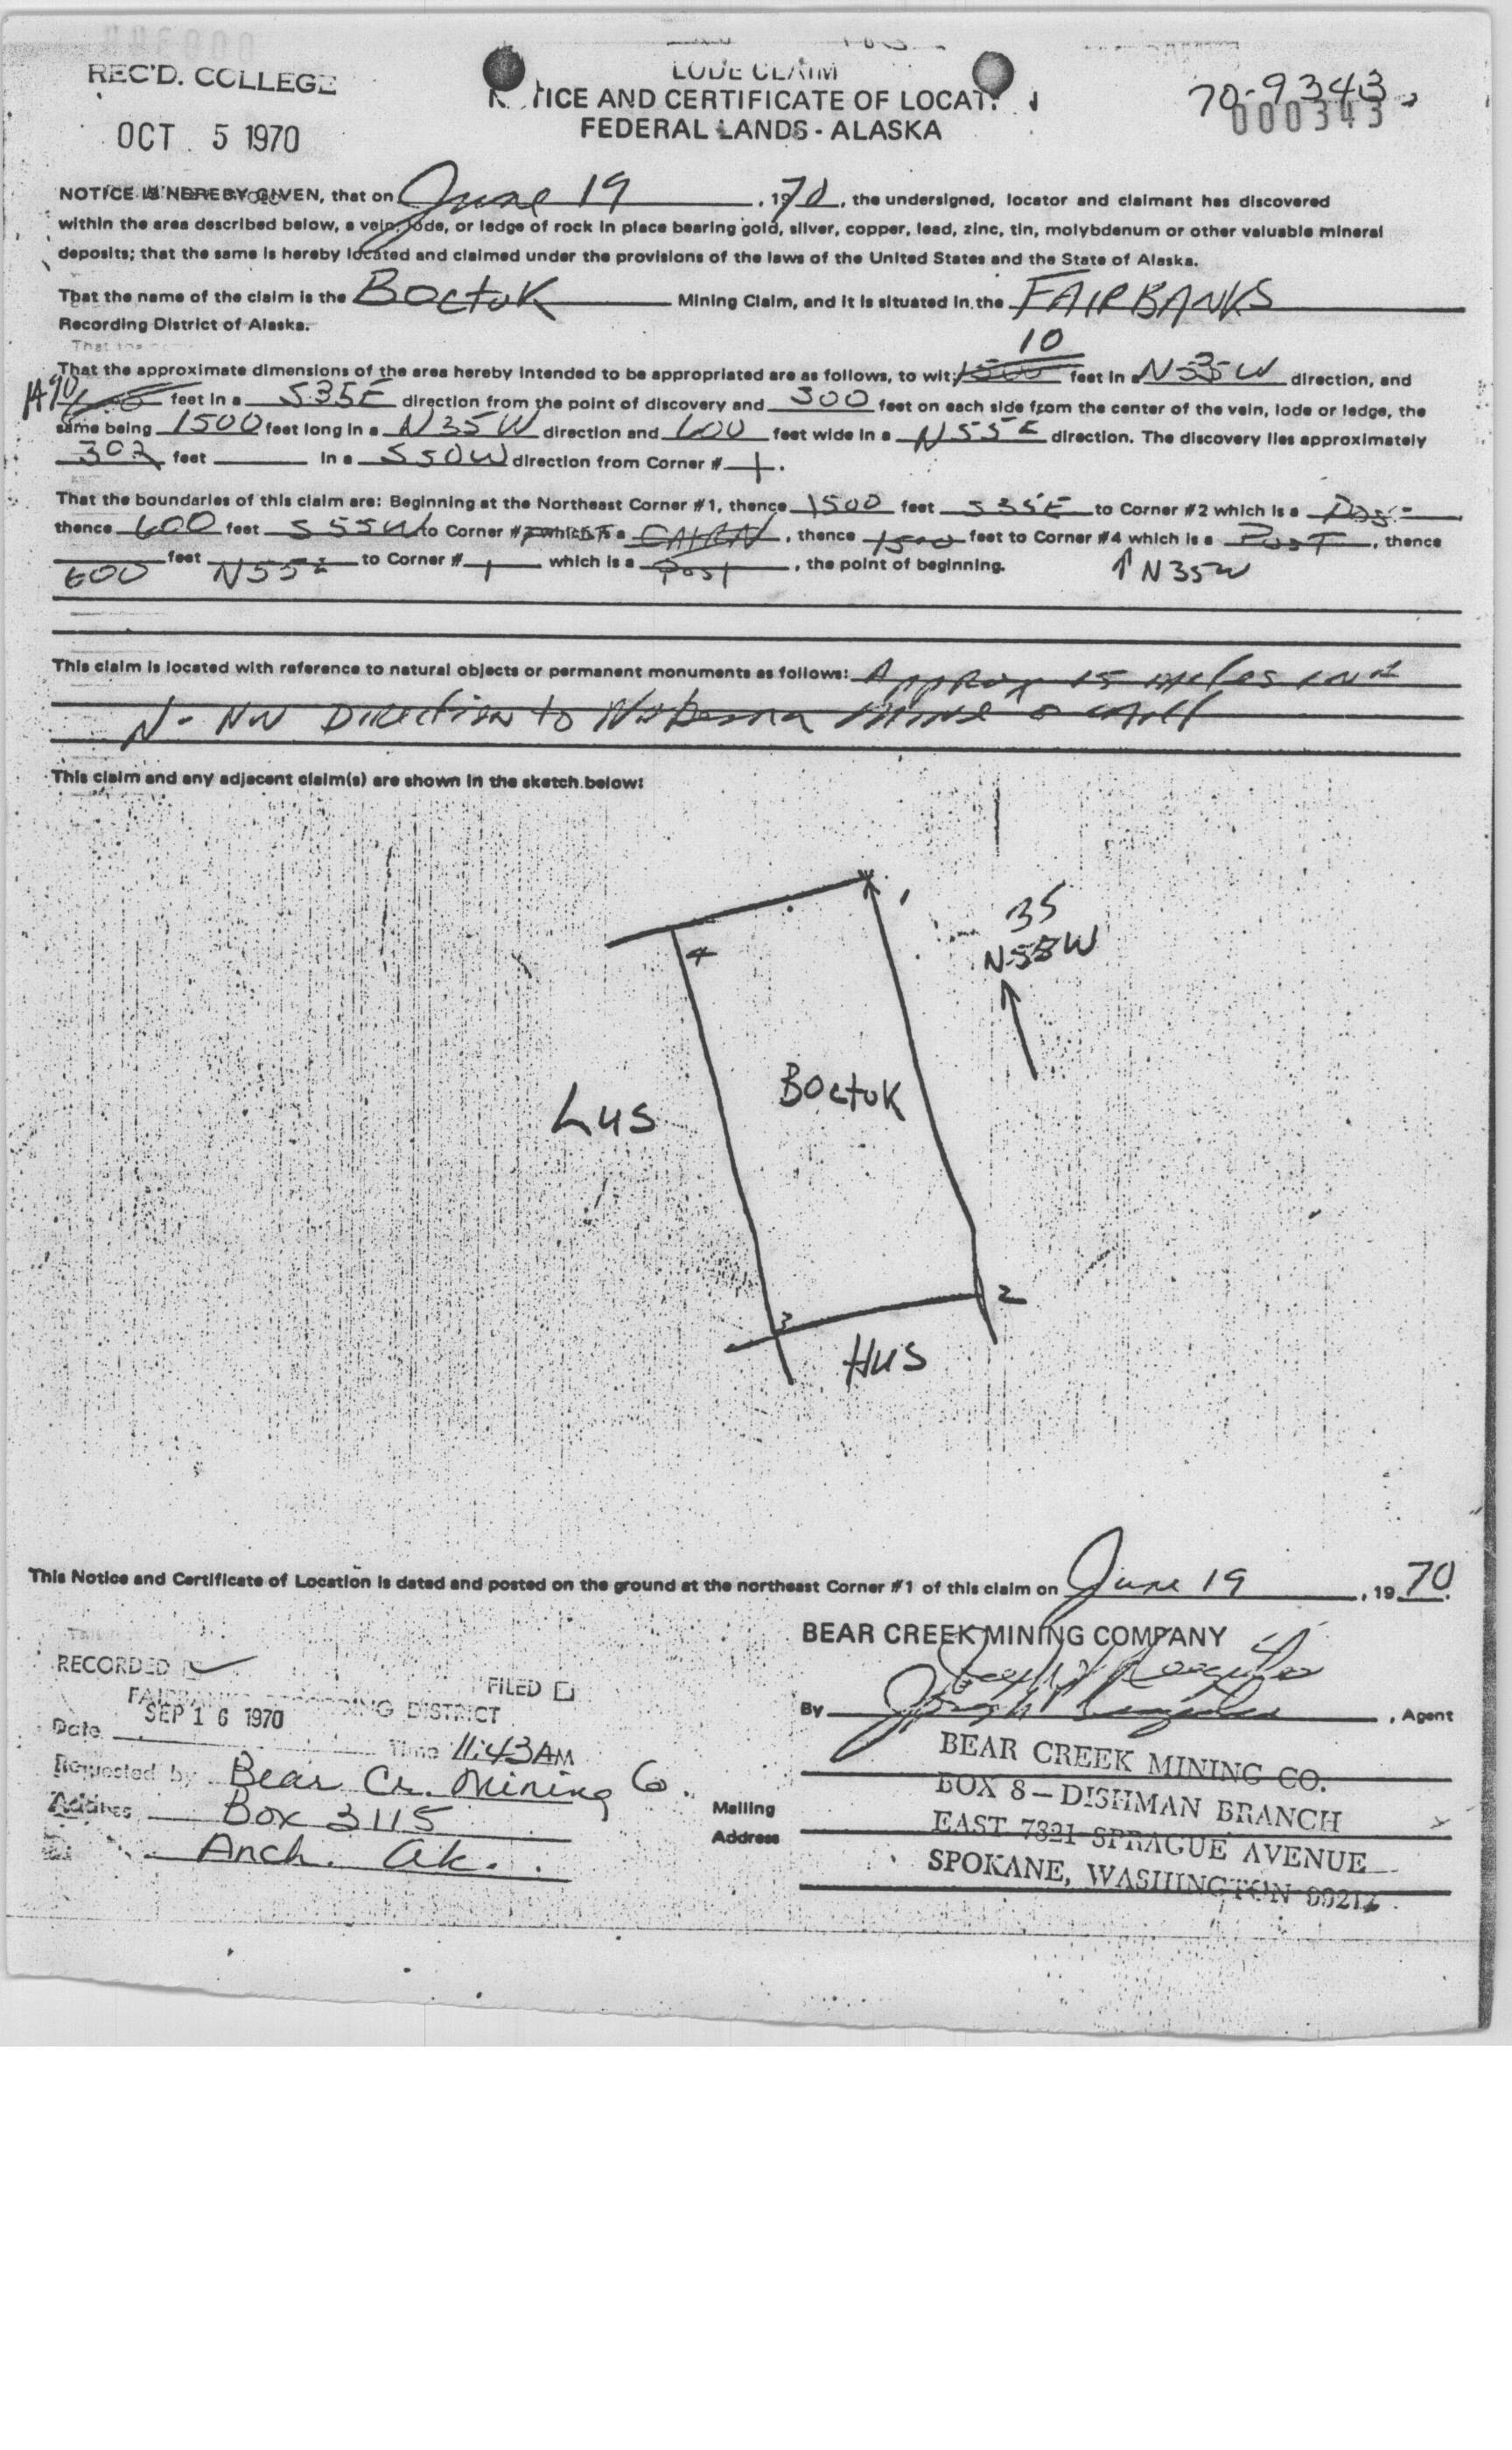 REC'D. COLLEGE
OCT 5 1970
LODE CLAIM
NOTICE AND CERTIFICATE OF LOCATION
FEDERAL LANDS - ALASKA
70-9343
000343
NOTICE IS HEREBY GIVEN, that on June 19, 1970, the undersigned, locator and claimant has discovered
within the area described below, a vein, lode, or ledge of rock in place bearing gold, silver, copper, lead, zinc, tin, molybdenum or other valuable mineral
deposits; that the same is hereby located and claimed under the provisions of the laws of the United States and the State of Alaska.
That the name of the claim is the Boctok Mining Claim, and it is situated in the FAIRBANKS
Recording District of Alaska.
10
That the approximate dimensions of the area hereby intended to be appropriated are as follows, to wit: 1500 feet in a N35W direction, and
1490 feet in a S35E direction from the point of discovery and 300 feet on each side from the center of the vein, lode or ledge, the
same being 1500 feet long in a N35W direction and 600 feet wide in a N55E direction. The discovery lies approximately
302 feet in a S50W direction from Corner # 1.
That the boundaries of this claim are: Beginning at the Northeast Corner #1, thence 1500 feet S35E to Corner #2 which is a Post,
thence 600 feet S55W to Corner # which is a CAIRN, thence 1500 feet to Corner #4 which is a Post, thence
600 feet N55E to Corner # 1 which is a Post, the point of beginning. ↑ N35W
This claim is located with reference to natural objects or permanent monuments as follows: Approx 15 miles
N-NW Direction to Nabesna mine
This claim and any adjacent claim(s) are shown in the sketch below:
1
35
N55W
4
Boctok
Lus
2
3
Hus
This Notice and Certificate of Location is dated and posted on the ground at the northeast Corner #1 of this claim on June 19, 1970.
BEAR CREEK MINING COMPANY
RECORDED
FILED
FAIRBANKS RECORDING DISTRICT
SEP 16 1970
By , Agent
Date Time 11:43 AM
Requested by Bear Cr. Mining Co.
Address Box 3115
Anch. Ak.
Mailing
Address
BEAR CREEK MINING CO.
BOX 8 – DISHMAN BRANCH
EAST 7321 SPRAGUE AVENUE
SPOKANE, WASHINGTON